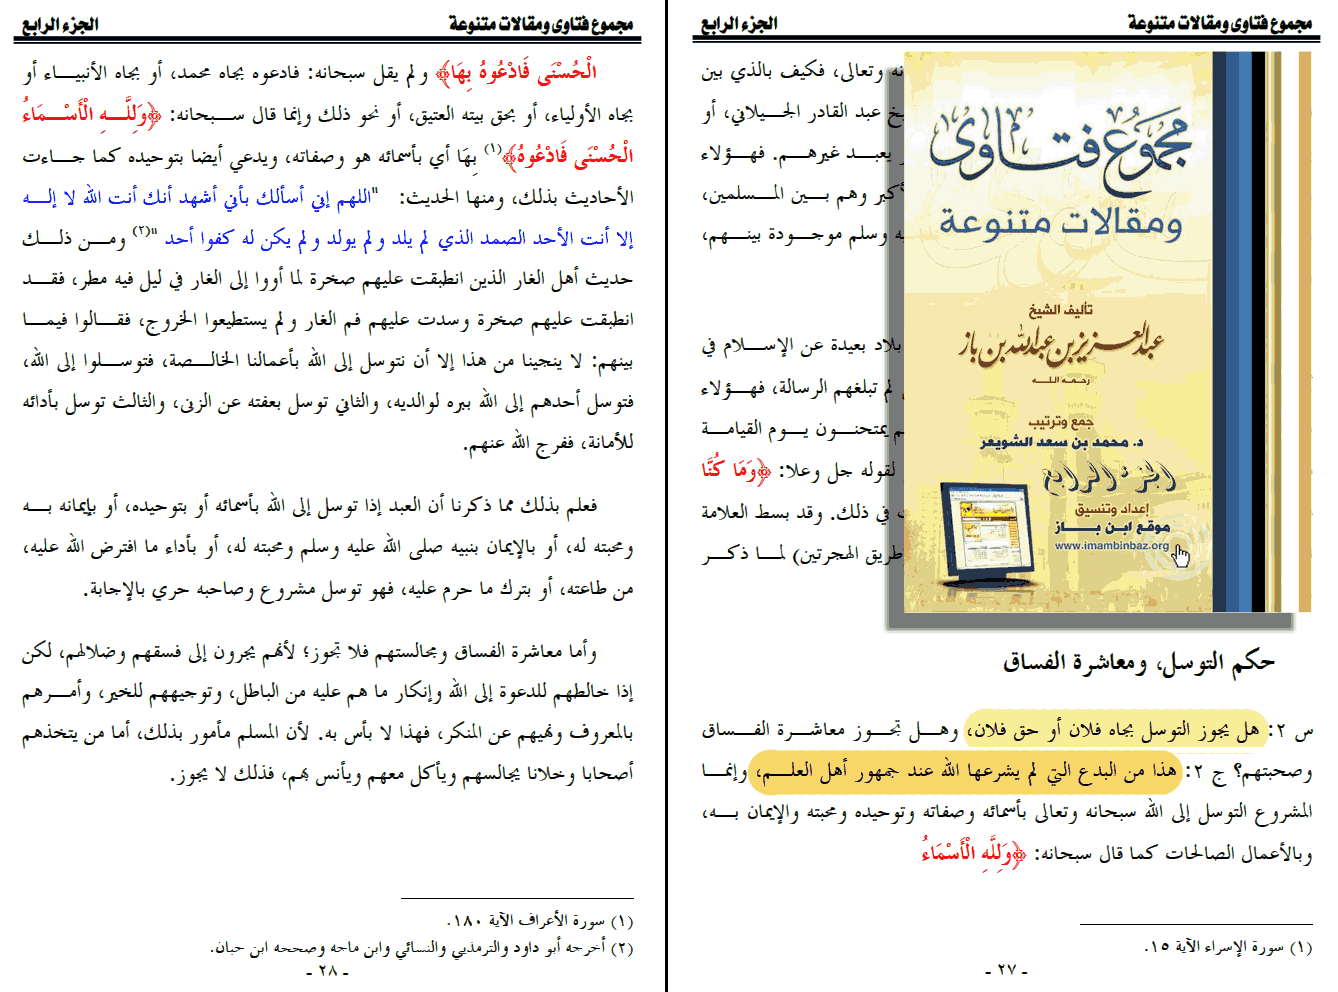 مجموع فتاوى ومقالات متنوعة الجزء الرابع
نه وتعالى، فكيف بالذي بين
يخ عبد القادر الجيلاني، أو
يعبد غيرهم. فهؤلاء
أكبر وهم بين المسلمين،
ه وسلم موجودة بينهم،
بلاد بعيدة عن الإسلام في
لم تبلغهم الرسالة، فهؤلاء
م يمتحنون يوم القيامة
لقوله جل وعلا: ﴿وَمَا كُنَّا
في ذلك. وقد بسط العلامة
طريق الهجرتين) لما ذكر
مجموع فتاوى
ومقالات متنوعة
تأليف الشيخ
عبدالعزيز بن عبدالله بن باز
رحمه الله
جمع وترتيب
د. محمد بن سعد الشويعر
الجزء الرابع
إعداد وتنسيق
موقع ابن باز
www.imambinbaz.org
حكم التوسل، ومعاشرة الفساق
س ٢: هل يجوز التوسل بجاه فلان أو حق فلان، وهل تجوز معاشرة الفساق
وصحبتهم؟ ج ٢: هذا من البدع التي لم يشرعها الله عند جمهور أهل العلم، وإنما
المشروع التوسل إلى الله سبحانه وتعالى بأسمائه وصفاته وتوحيده ومحبته والإيمان به،
وبالأعمال الصالحات كما قال سبحانه: ﴿وَلِلَّهِ الْأَسْمَاءُ
(١) سورة الإسراء الآية ١٥.
- ٢٧ -
مجموع فتاوى ومقالات متنوعة الجزء الرابع
الْحُسْنَى فَادْعُوهُ بِهَا﴾ ولم يقل سبحانه: فادعوه بجاه محمد، أو بجاه الأنبياء أو
بجاه الأولياء، أو بحق بيته العتيق، أو نحو ذلك وإنما قال سبحانه: ﴿وَلِلَّهِ الْأَسْمَاءُ
الْحُسْنَى فَادْعُوهُ﴾(١) بِهَا أي بأسمائه هو وصفاته، ويدعي أيضا بتوحيده كما جاءت
الأحاديث بذلك، ومنها الحديث: "اللهم إني أسألك بأني أشهد أنك أنت الله لا إله
إلا أنت الأحد الصمد الذي لم يلد ولم يولد ولم يكن له كفوا أحد "(٢) ومن ذلك
حديث أهل الغار الذين انطبقت عليهم صخرة لما أووا إلى الغار في ليل فيه مطر، فقد
انطبقت عليهم صخرة وسدت عليهم فم الغار ولم يستطيعوا الخروج، فقالوا فيما
بينهم: لا ينجينا من هذا إلا أن نتوسل إلى الله بأعمالنا الخالصة، فتوسلوا إلى الله،
فتوسل أحدهم إلى الله ببره لوالديه، والثاني توسل بعفته عن الزنى، والثالث توسل بأدائه
للأمانة، ففرج الله عنهم.
فعلم بذلك مما ذكرنا أن العبد إذا توسل إلى الله بأسمائه أو بتوحيده، أو بإيمانه به
ومحبته له، أو بالإيمان بنبيه صلى الله عليه وسلم ومحبته له، أو بأداء ما افترض الله عليه،
من طاعته، أو بترك ما حرم عليه، فهو توسل مشروع وصاحبه حري بالإجابة.
وأما معاشرة الفساق ومجالستهم فلا تجوز؛ لأنهم يجرون إلى فسقهم وضلالهم، لكن
إذا خالطهم للدعوة إلى الله وإنكار ما هم عليه من الباطل، وتوجيههم للخير، وأمرهم
بالمعروف ونهيهم عن المنكر، فهذا لا بأس به. لأن المسلم مأمور بذلك، أما من يتخذهم
أصحابا وخلانا يجالسهم ويأكل معهم ويأنس بهم، فذلك لا يجوز.
(١) سورة الأعراف الآية ١٨٠.
(٢) أخرجه أبو داود والترمذي والنسائي وابن ماجه وصححه ابن حبان.
- ٢٨ -